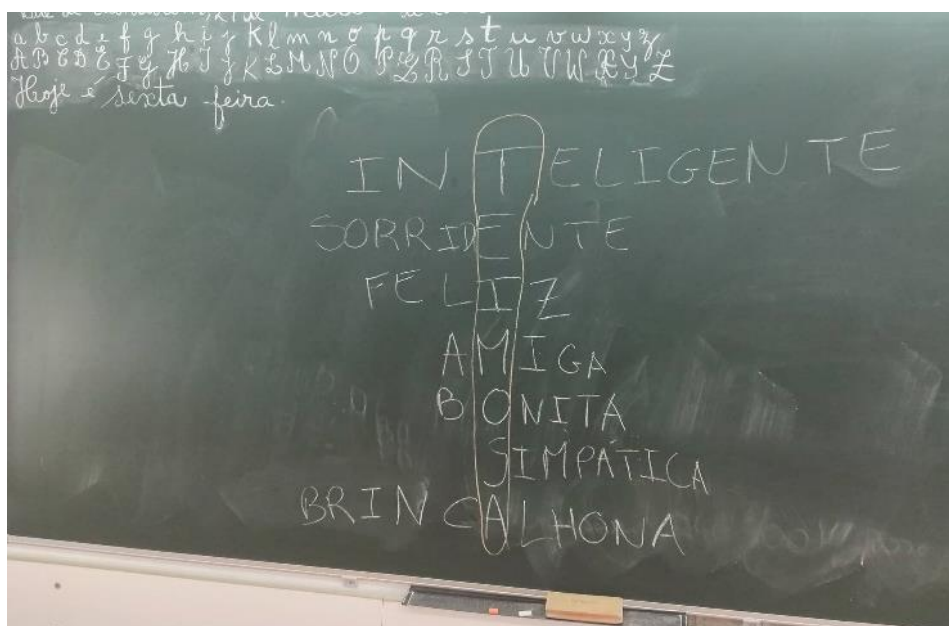 a b c d e f g h i j k l m n o p q r s t u v w x y z
A B C D E F G H I J K L M N O P Q R S T U V W X Y Z
Hoje é sexta feira.
INTELIGENTE
SORRIDENTE
FELIZ
AMIGA
BONITA
SIMPÁTICA
BRINCALHONA